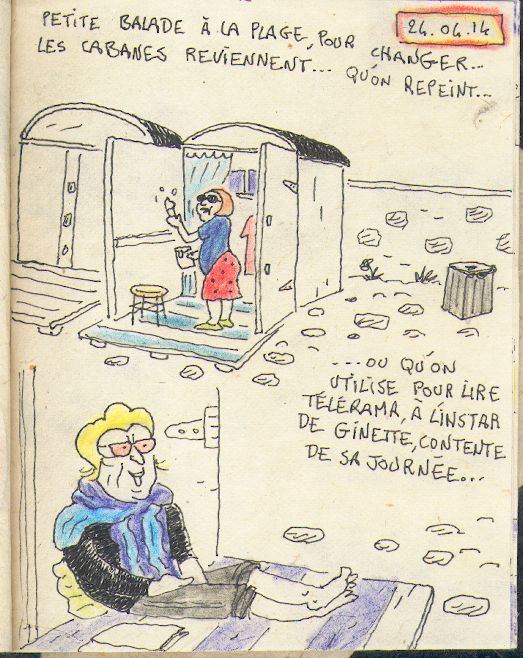 PETITE BALADE À LA PLAGE, POUR CHANGER...
24.04.14
LES CABANES REVIENNENT... QU'ON REPEINT...
...OU QU'ON
UTILISE POUR LIRE
TÉLÉRAMA, À L'INSTAR
DE GINETTE, CONTENTE
DE SA JOURNÉE...